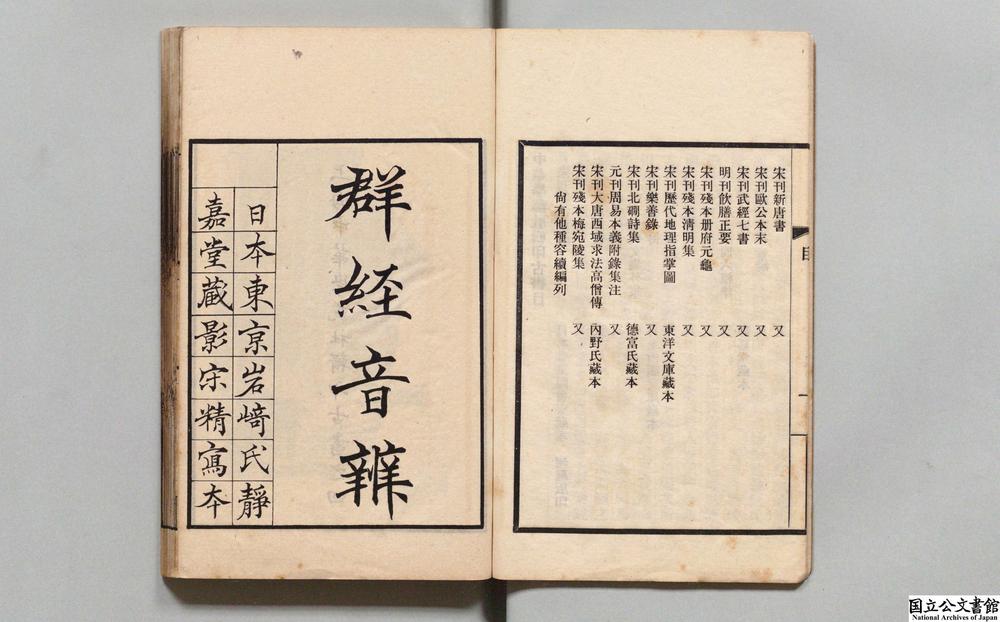 目
一
宋刊新唐書 又
宋刊歐公本末 又
宋刊武經七書 又
明刊飲膳正要 又
宋刊殘本册府元龜 又
宋刊殘本淸明集 又
宋刊歷代地理指掌圖 東洋文庫藏本
宋刊樂善錄 又
宋刊北礀詩集 德富氏藏本
元刊周易本義附錄集注 又
宋刊大唐西域求法高僧傳 內野氏藏本
宋刊殘本梅宛陵集 又
尙有他種容續編列
群経音辨
日本東京岩﨑氏靜
嘉堂蔵影宋精寫本
国立公文書館
National Archives of Japan